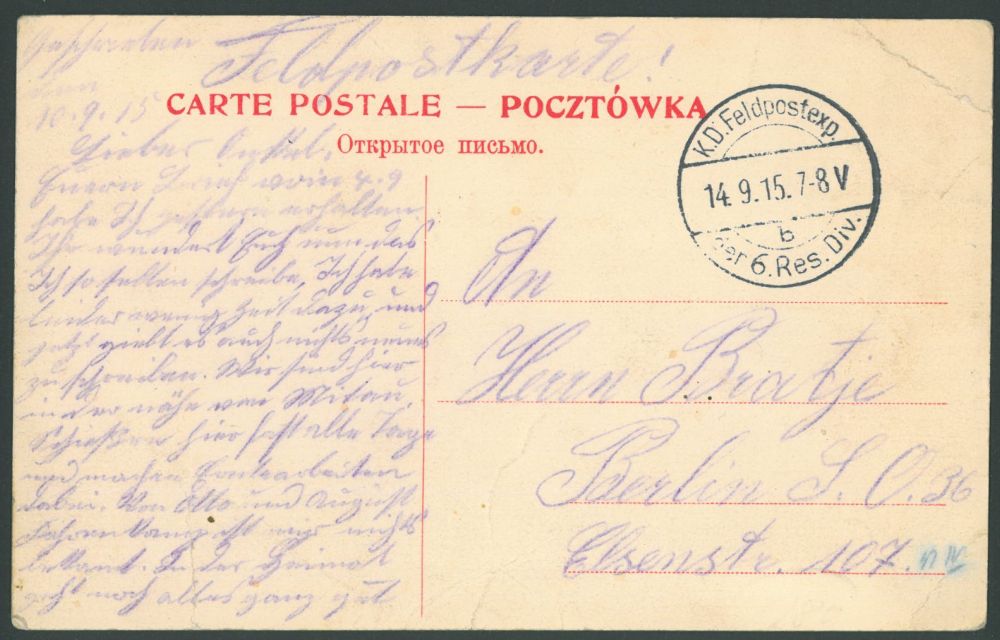 Geschrieben
den
10.9.15
Feldpostkarte!
CARTE POSTALE — POCZTÓWKA
Открытое письмо.
Lieber Onkel,
Euern Brief vom 4.9
habe Ich gestern erhalten.
Ihr wundert Euch nun das
Ich so selten schreibe, Ich habe
leider wenig Zeit dazu, und
jetzt giebt es auch nichts neues
zu schreiben. Wir sind hier
in der nähe von Mitau,
Schießen hier fast alle Tage
und machen
dabei. Von Otto und August
ist mir nichts
bekant. In der Heimat
geht noch alles ganz gut
K.D. Feldpostexp.
14.9.15.7-8V
b
der 6. Res. Div.
An
Herrn Bratje
Berlin S.O. 36
Elsenstr. 107.